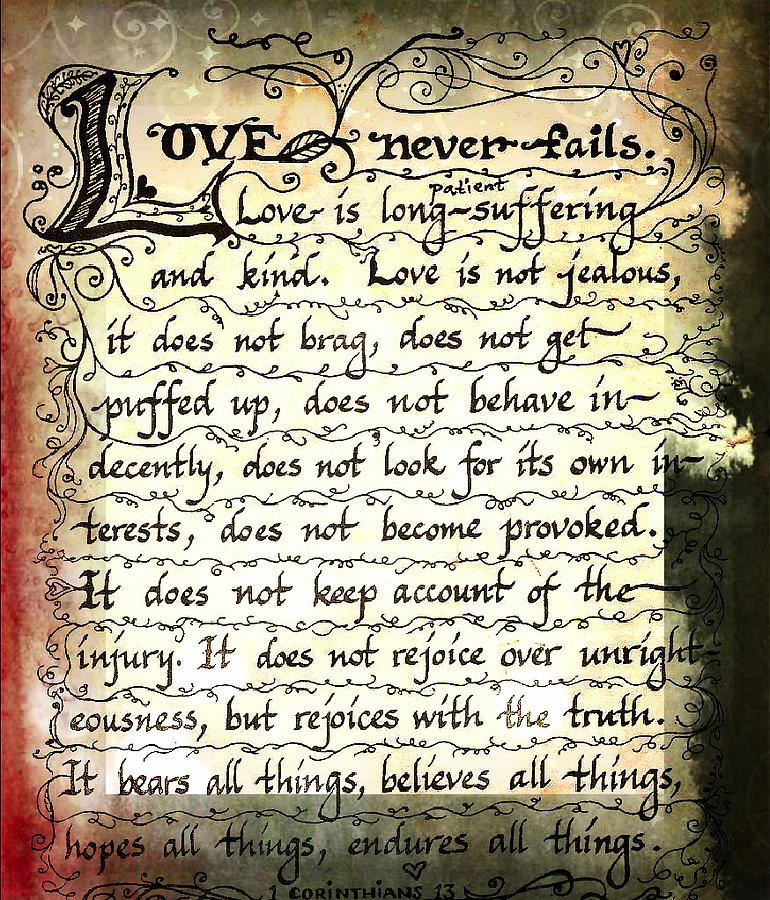 LOVE never fails.
patient
Love is long-suffering
and kind. Love is not jealous,
it does not brag, does not get
puffed up, does not behave in-
decently, does not look for its own in-
terests, does not become provoked.
It does not keep account of the
injury. It does not rejoice over unright-
eousness, but rejoices with the truth.
It bears all things, believes all things,
hopes all things, endures all things.
1 CORINTHIANS 13